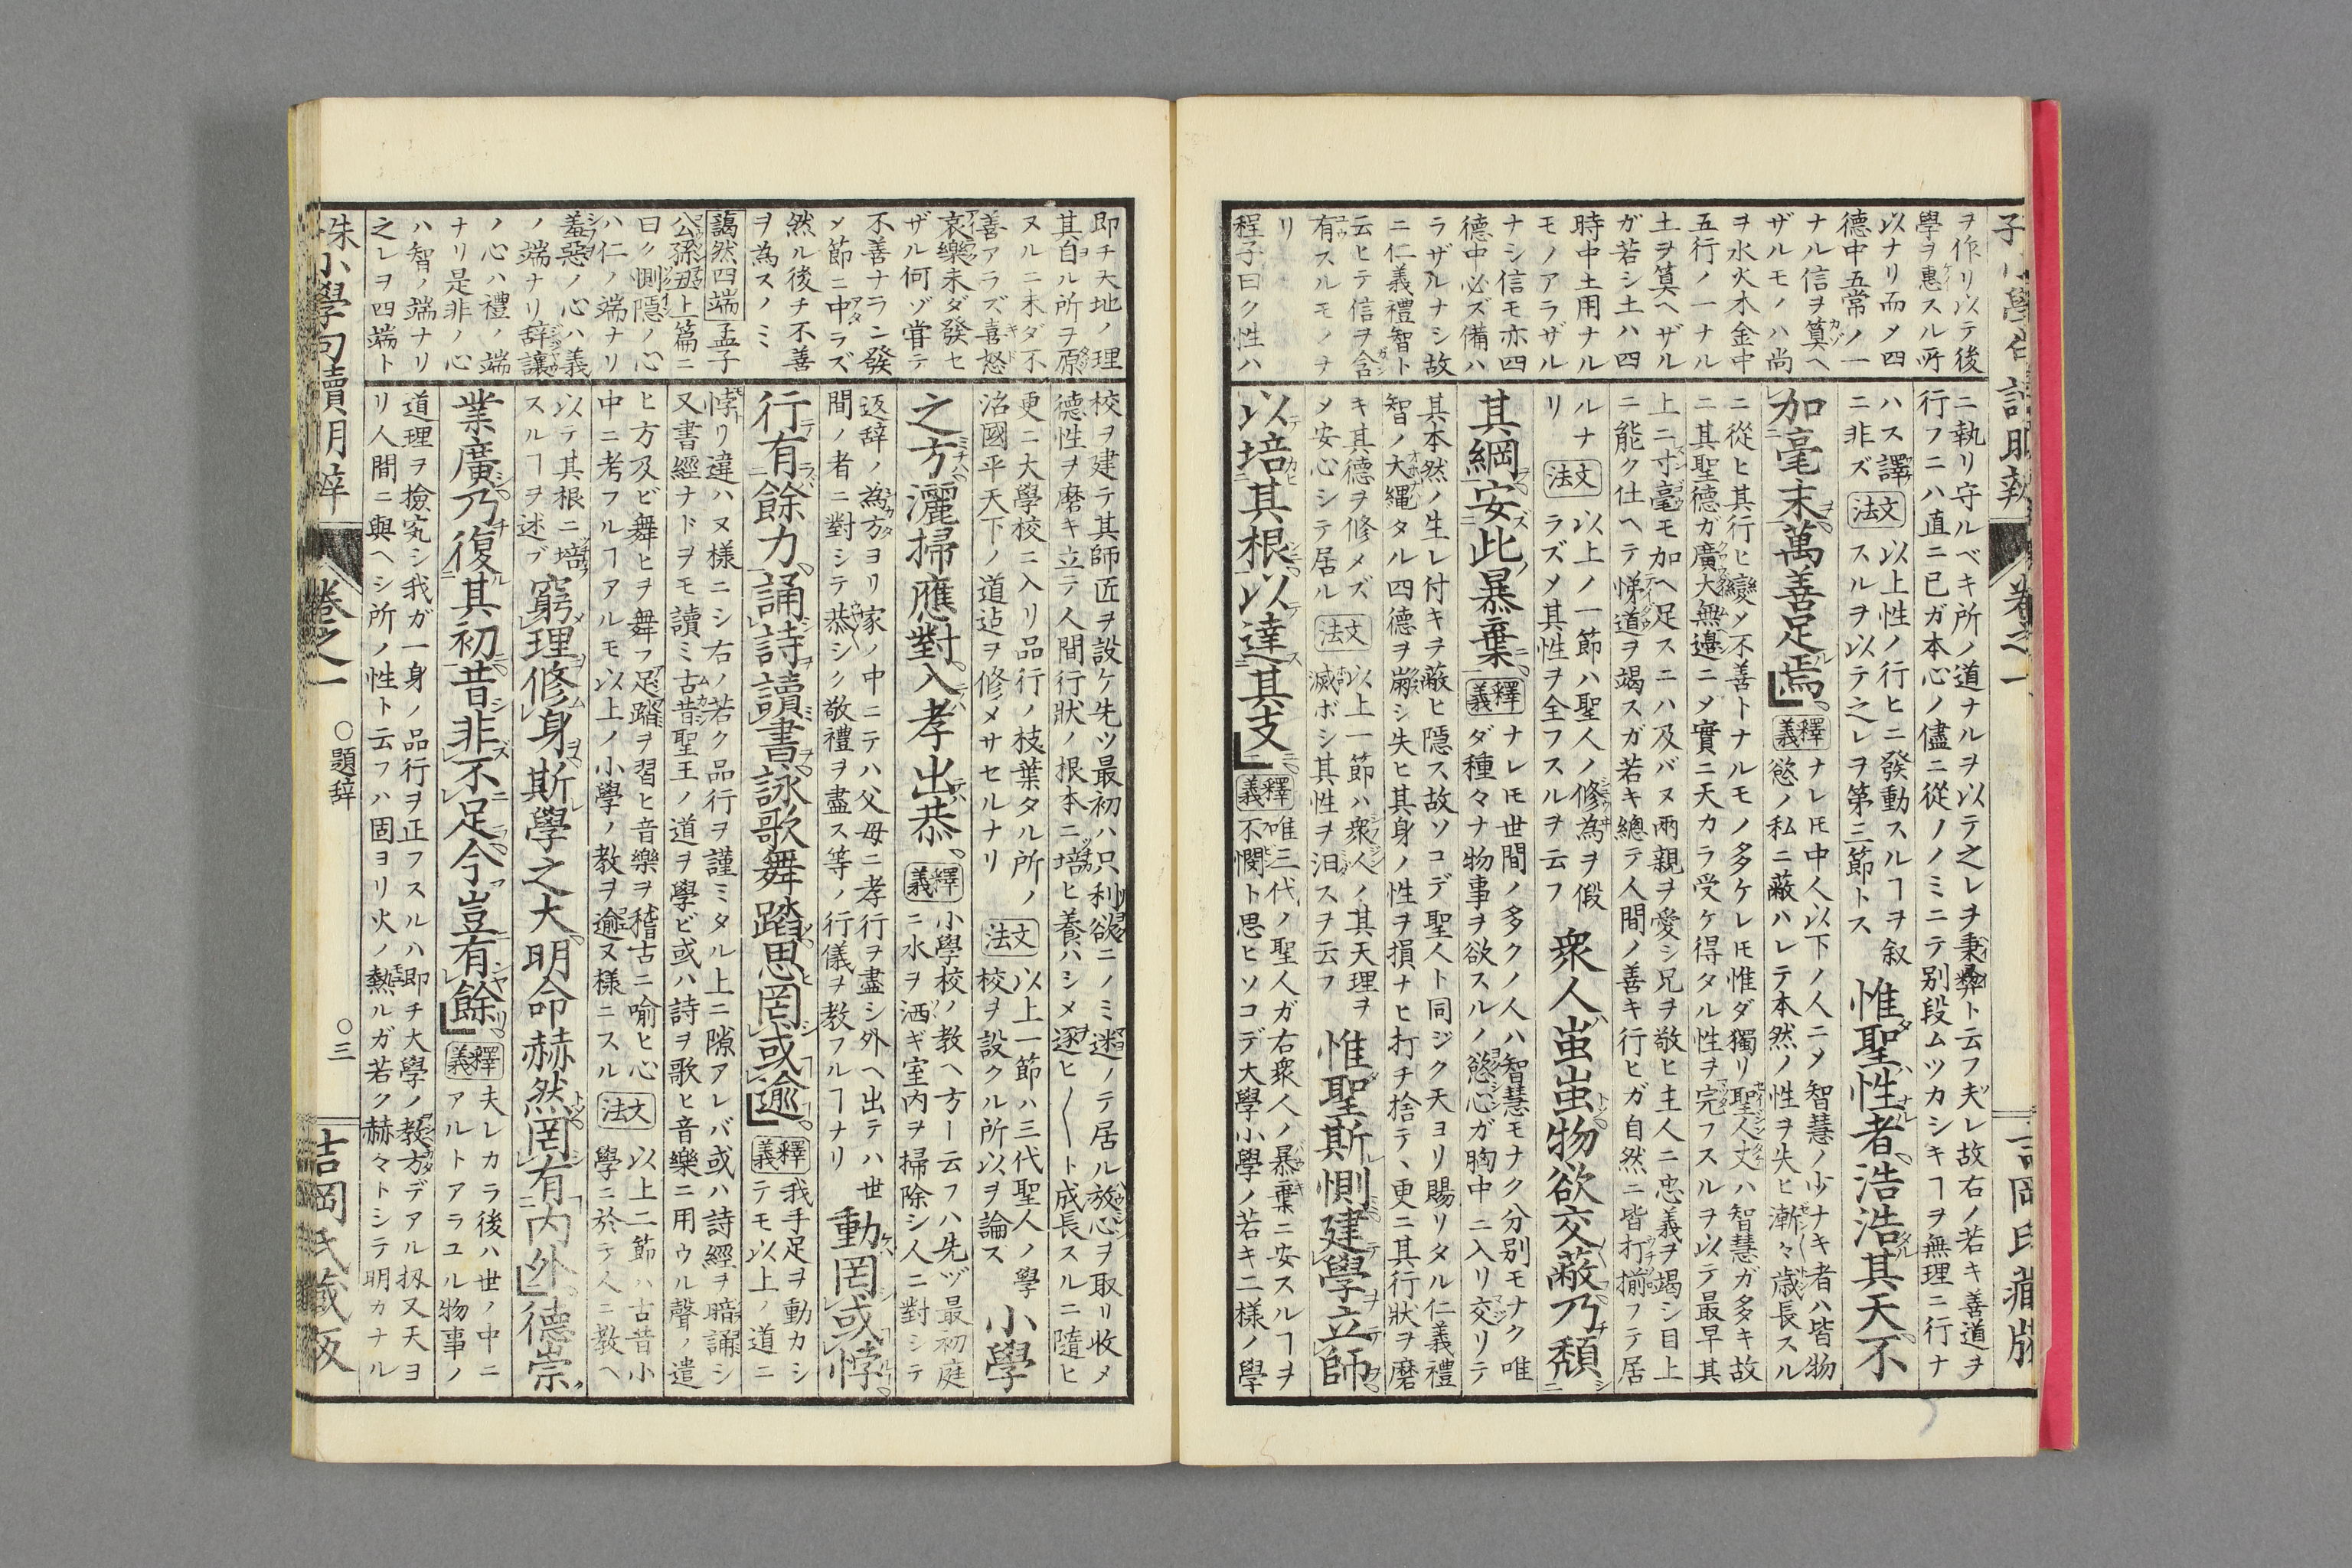 ヲ作リ以テ後
學ヲ惠スル所
以ナリ而メ四
德中五常ノ一
ナル信ヲ算ヘ
ザルモノハ尚
ヲ水火木金中
五行ノ一ナル
土ヲ算ヘザル
ガ若シ土ハ四
時中土用ナル
モノアラザル
ナシ信モ亦四
德中必ズ備ハ
ラザルナシ故
ニ仁義禮智ト
云ヒテ信ヲ含
有スルモノヲ
リ
程子曰ク性ハ
ニ執リ守ルベキ所ノ道ナルヲ以テ之レヲ秉彝ト云フ夫レ故右ノ若キ善道ヲ
行フニハ直ニ已ガ本心ノ儘ニ從ノノミニテ別段ムツカシキヿヲ無理ニ行ナ
ハス譯
ニ非ズ
文法
以上性ノ行ヒニ發動スルヿヲ叙
スルヲ以テ之レヲ第三節トス
惟聖性者浩浩其天不
加毫末萬善足焉
釋義
ナレ𪜈中人以下ノ人ニメ智慧ノ少ナキ者ハ皆物
慾ノ私ニ蔽ハレテ本然ノ性ヲ失ヒ漸々歳長スル
ニ從ヒ其行ヒ變メ不善トナルモノ多ケレ𪜈惟ダ獨リ聖人丈ハ智慧ガ多キ故
ニ其聖德ガ廣大無邊ニメ實ニ天カラ受ケ得タル性ヲ完フスルヲ以テ最早其
上ニ寸毫モ加ヘ足スニハ及バヌ兩親ヲ愛シ兄ヲ敬ヒ主人ニ忠義ヲ竭シ目上
ニ能ク仕ヘテ悌道ヲ竭スガ若キ總テ人間ノ善キ行ヒガ自然ニ皆打揃フテ居
ルナ
リ
文法
以上ノ一節ハ聖人ノ修為ヲ假
ラズメ其性ヲ全フスルヲ云フ
衆人蚩蚩物欲交蔽乃頽
其綱安此暴棄
釋義
ナレ𪜈世間ノ多クノ人ハ智慧モナク分別モナク唯
ダ種々ナ物事ヲ欲スルノ慾心ガ胸中ニ入リ交リテ
其本然ノ生レ付キヲ蔽ヒ隱ス故ソコデ聖人ト同ジク天ヨリ賜リタル仁義禮
智ノ大繩タル四德ヲ崩シ失ヒ其身ノ性ヲ損ナヒ打チ捨テ、更ニ其行狀ヲ磨
キ其德ヲ修メズ
メ安心シテ居ル
文法
以上一節ハ衆人ノ其天理ヲ
滅ボシ其性ヲ汨スヲ云フ
惟聖斯惻建學立師
以培其根以達其支
釋義
唯三代ノ聖人ガ右衆人ノ暴棄ニ安スルヿヲ
不閔ト思ヒソコデ大學小學ノ若キ二樣ノ學
即チ天地ノ理
其自ル所ヲ原
ヌルニ未ダ不
善アラズ喜怒
哀樂未ダ發セ
ザル何ゾ甞テ
不善ナラン發
メ節ニ中ラズ
然ル後チ不善
ヲ為スノミ
藹然四端 孟子
公孫丑上篇ニ
曰ク惻隱ノ心
ハ仁ノ端ナリ
羞惡ノ心ハ義
ノ端ナリ辞讓
ノ心ハ禮ノ端
ナリ是非ノ心
ハ智ノ端ナリ
之レヲ四端ト
校ヲ建テ其師匠ヲ設ケ先ツ最初ハ只利欲ニノミ迷ノテ居ル放心ヲ取リ收メ
德性ヲ磨キ立テ人間行狀ノ根本ニ培ヒ養ハシメ逐ヒ〱ト成長スルニ隨ヒ
更ニ大學校ニ入リ品行ノ枝葉タル所ノ
治國平天下ノ道迠ヲ修メサセルナリ
文法
以上一節ハ三代聖人ノ學
校ヲ設クル所以ヲ論ス
小學
之方灑掃應對入孝出恭
釋義
小學校ノ教ヘ方ー云フハ先ヅ最初庭
ニ水ヲ洒ギ室内ヲ掃除シ人ニ對シテ
返辞ノ為方ヨリ家ノ中ニテハ父母ニ孝行ヲ盡シ外ヘ出テハ世
間ノ者ニ對シテ恭シク敬禮ヲ盡ス等ノ行儀ヲ教フルヿナリ
動罔或悖
行有餘力誦詩讀書詠歌舞踏思罔或逾
釋義
我手足ヲ動カシ
テモ以上ノ道ニ
悖リ違ハヌ樣ニシ右ノ若ク品行ヲ謹ミタル上ニ隙アレバ或ハ詩經ヲ暗誦シ
又書經ナドヲモ讀ミ古昔聖王ノ道ヲ學ビ或ハ詩ヲ歌ヒ音樂ニ用ウル聲ノ遣
ヒ方及ビ舞ヒヲ舞フ足踏ヲ習ヒ音樂ヲ稽古ニ喻ヒ心
中ニ考フルヿアルモ以上ノ小學ノ教ヲ逾ヌ樣ニスル
文法
以上二節ハ古昔小
學ニ於テ人ニ教ヘ
以テ其根ニ培
スルヿヲ述ブ
窮理修身斯學之大明命赫然罔有内外德崇
業廣乃復其初昔非不足今豈有餘
釋義
夫レカラ後ハ世ノ中ニ
アルトアラユル物事ノ
道理ヲ撿究シ我ガ一身ノ品行ヲ正フスルハ即チ大學ノ教方デアル扨又天ヨ
リ人間ニ與ヘシ所ノ性ト云フハ固ヨリ火ノ熱ルガ若ク赫々トシテ明カナル
朱小學句讀明辞 卷之一 〇題辞 〇三 吉岡氏藏版